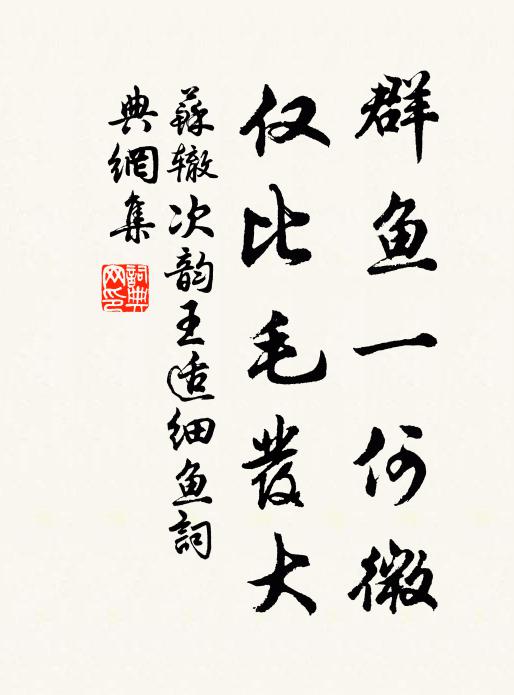 群鱼一何微
仅比毛發大
蘇辙次韵王适细鱼詞
典網集
詞典网印